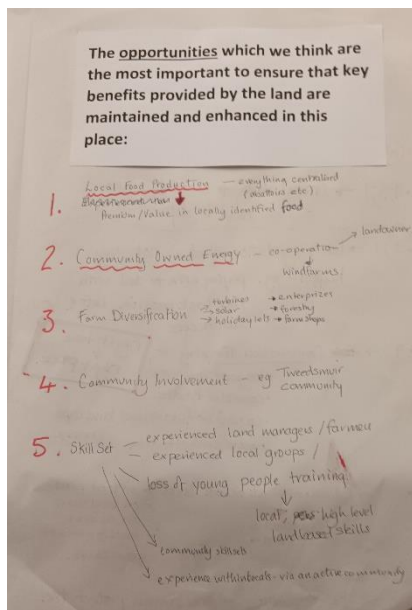 The opportunities which we think are
the most important to ensure that key
benefits provided by the land are
maintained and enhanced in this
place:
1. Local Food Production – everything centralised
(abattoirs etc)
Premium/Value in locally identified food
2. Community Owned Energy – co-operation → landowner
windfarms
3. Farm Diversification → turbines → enterprizes
→ solar → forestry
→ holiday lets → farm shops
4. Community Involvement – eg Tweedsmuir
community
5. Skill Set – experienced land managers / farmers
– experienced local groups /
loss of young people training
local, high level
landbased skills
community skillsets
experience within locals – via an active community